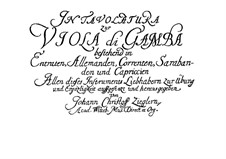 INTAVOLATURA
zur
VIOLA di GAMBA
bestehend in
Entreen, Allemanden, Correnten, Saraban-
den und Capriccien
Allen dieses Instruments Liebhabern zur Übung
und Ergötzlichkeit aufgesetzt und herausgegeben
von
Johann Christoff Zieglern,
Acad. Witteb. Mus. Direct. et Org.